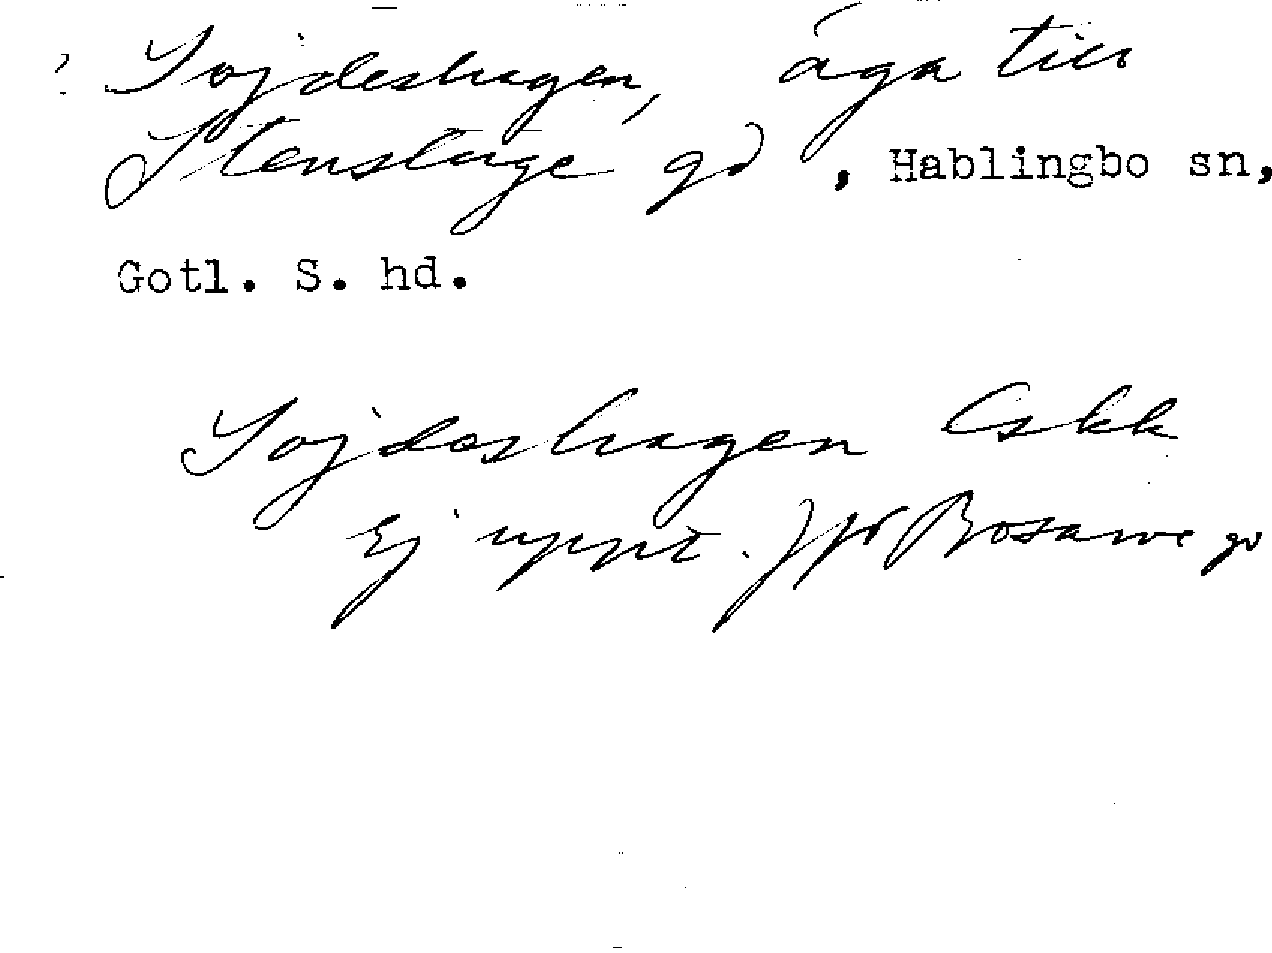 ? Sojdeshagen, äga till
Stenstuge gd, Hablingbo sn,
Gotl. S. hd.
Sojdeshagen Eskk
Ej uppt. Jfr Bosarve gd